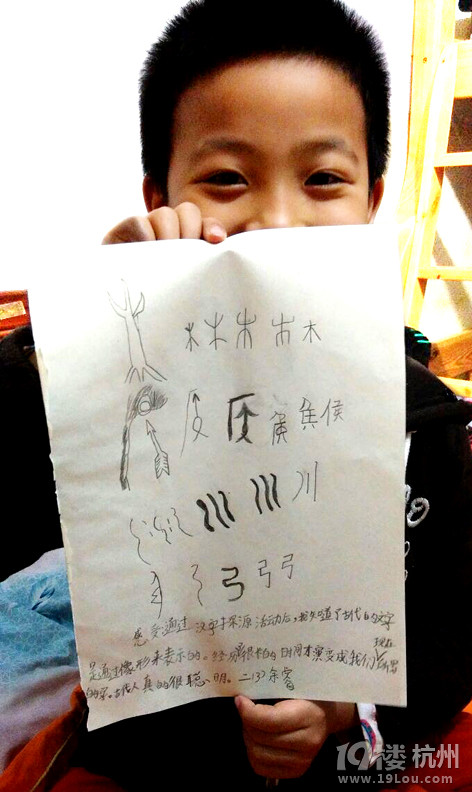 木 木 木 木 木
侯
川
弓 弓 弓
感受通过汉字探源活动后，我知道了古代的文字
是通过像形来表示的。经历很长的时间演变成我们现在所写
的字。古代人真的很聪明。二(3)余睿
19楼 杭州
www.19Lou.com